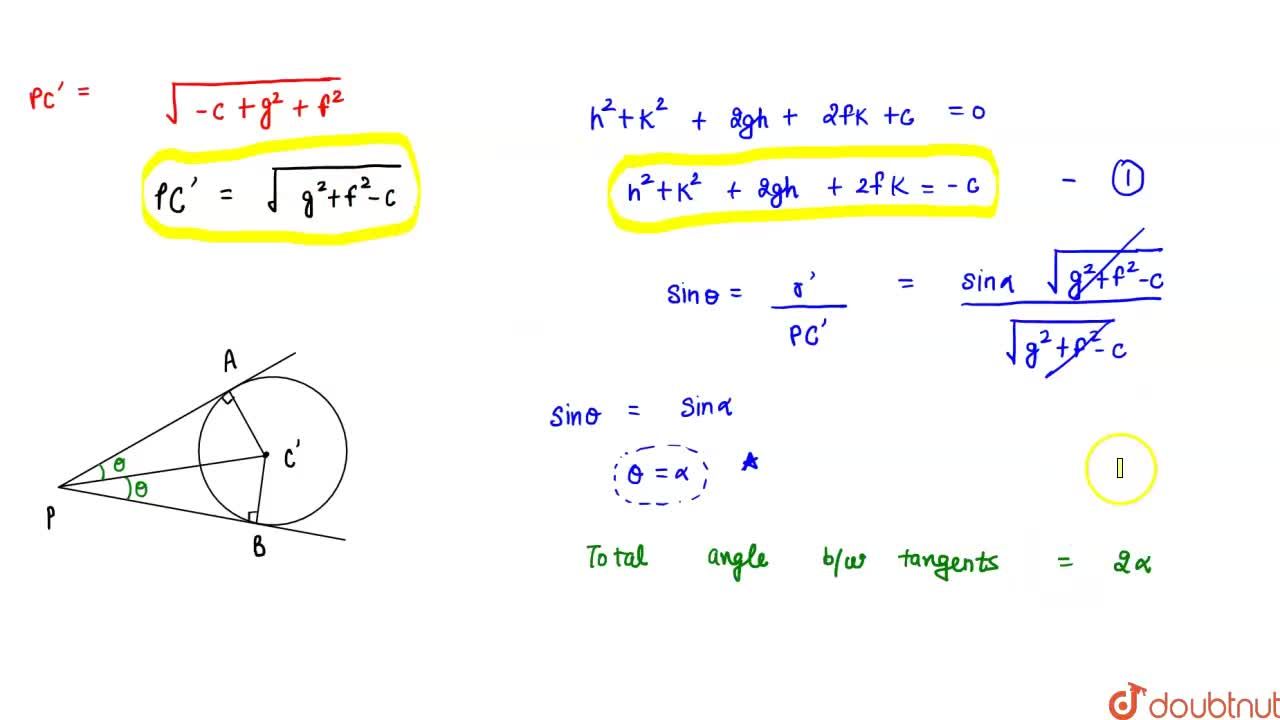 PC' = √(-c + g² + f²)
PC' = √(g²+f²-c)
h²+k² + 2gh + 2fk + c = 0
h²+k² + 2gh + 2fk = -c - ①
sinθ = r'/PC' = sinα √(g²+f²-c) / √(g²+f²-c)
sinθ = sinα
θ = α
Total angle b/w tangents = 2α
A
θ
C'
θ
P
B
doubtnut